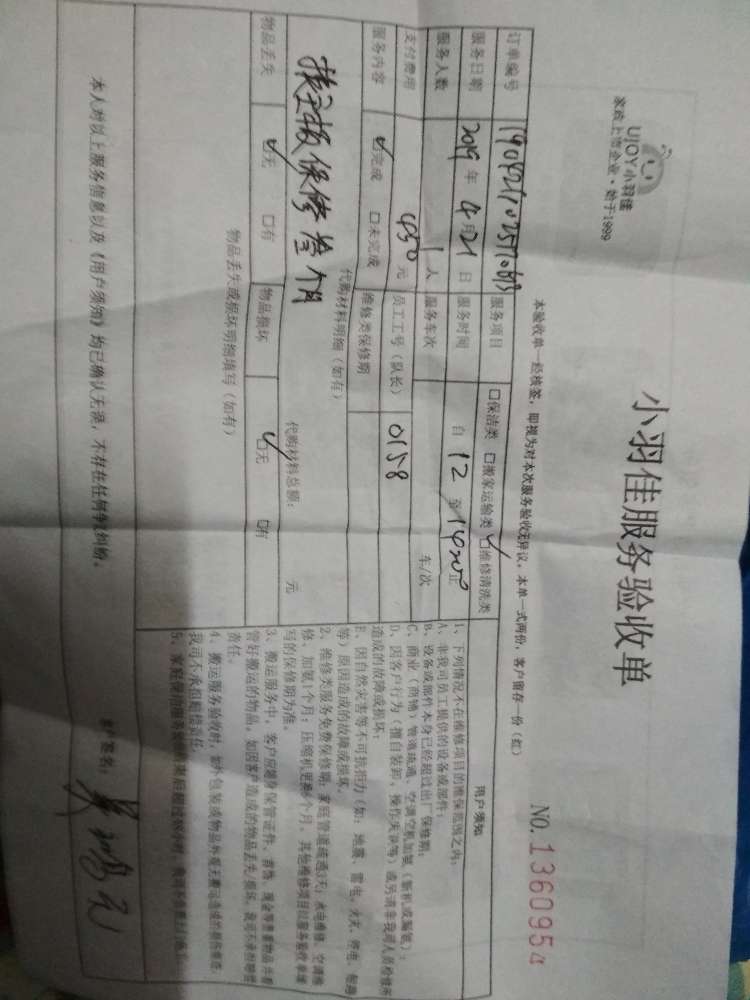 UJOY小羽佳
家政上市企业·始于1999
小羽佳服务验收单
NO. 1360954
本验收单一经核签，即视为对本次服务验收无异议，本单一式两份，客户留存一份（红）
订单编号 服务项目 □保洁类 □搬家运输类 ☑维修清洗类
服务日期 2019年4月21日 服务时间 自12至14 止
服务人数 1人 服务车次 车/次
支付费用 450元 员工工号（队长） 0158
服务内容 ☑完成 □未完成 维修类保修期
代购材料明细（如有）
换主板保修叁个月
代购材料总额： 元
物品丢失 ☑无 □有 物品损坏 ☑无 □有
物品丢失或损坏明细填写（如有）
用户须知
1、下列情况不在维修项目的维保范围之内：
A、非我司员工提供的设备或部件；
B、设备或部件本身已经超过出厂保修期；
C、商业（商铺）管道疏通、空调空机加氨（新机或漏氨）；
D、因客户行为（擅自装卸、操作失误等）或另请非我司人员检修所
造成的故障或损坏；
E、因自然灾害等不可抗拒力（如：地震、雷电、火灾、停电、
等）原因造成的故障或损坏。
2、维修类服务免费保修期：家庭管道疏通3天；水电维修、空调维
修、加氨1个月；压缩机更换6个月，其他维修项目以服务验收单填
写的保修期为准。
3、搬运服务中，客户应随身保管证件、首饰、现金等贵重物品并看
管好搬运的物品，如因客户造成的物品丢失/损坏，我司不承担赔偿
责任。
4、搬运服务验收时，如外包装或物品外观无搬运造成的损伤痕迹，
我司不承担赔偿责任。
5、家庭保洁服务
本人对以上服务信息以及《用户须知》均已确认无误，不存在任何争议纠纷。
客户签名：